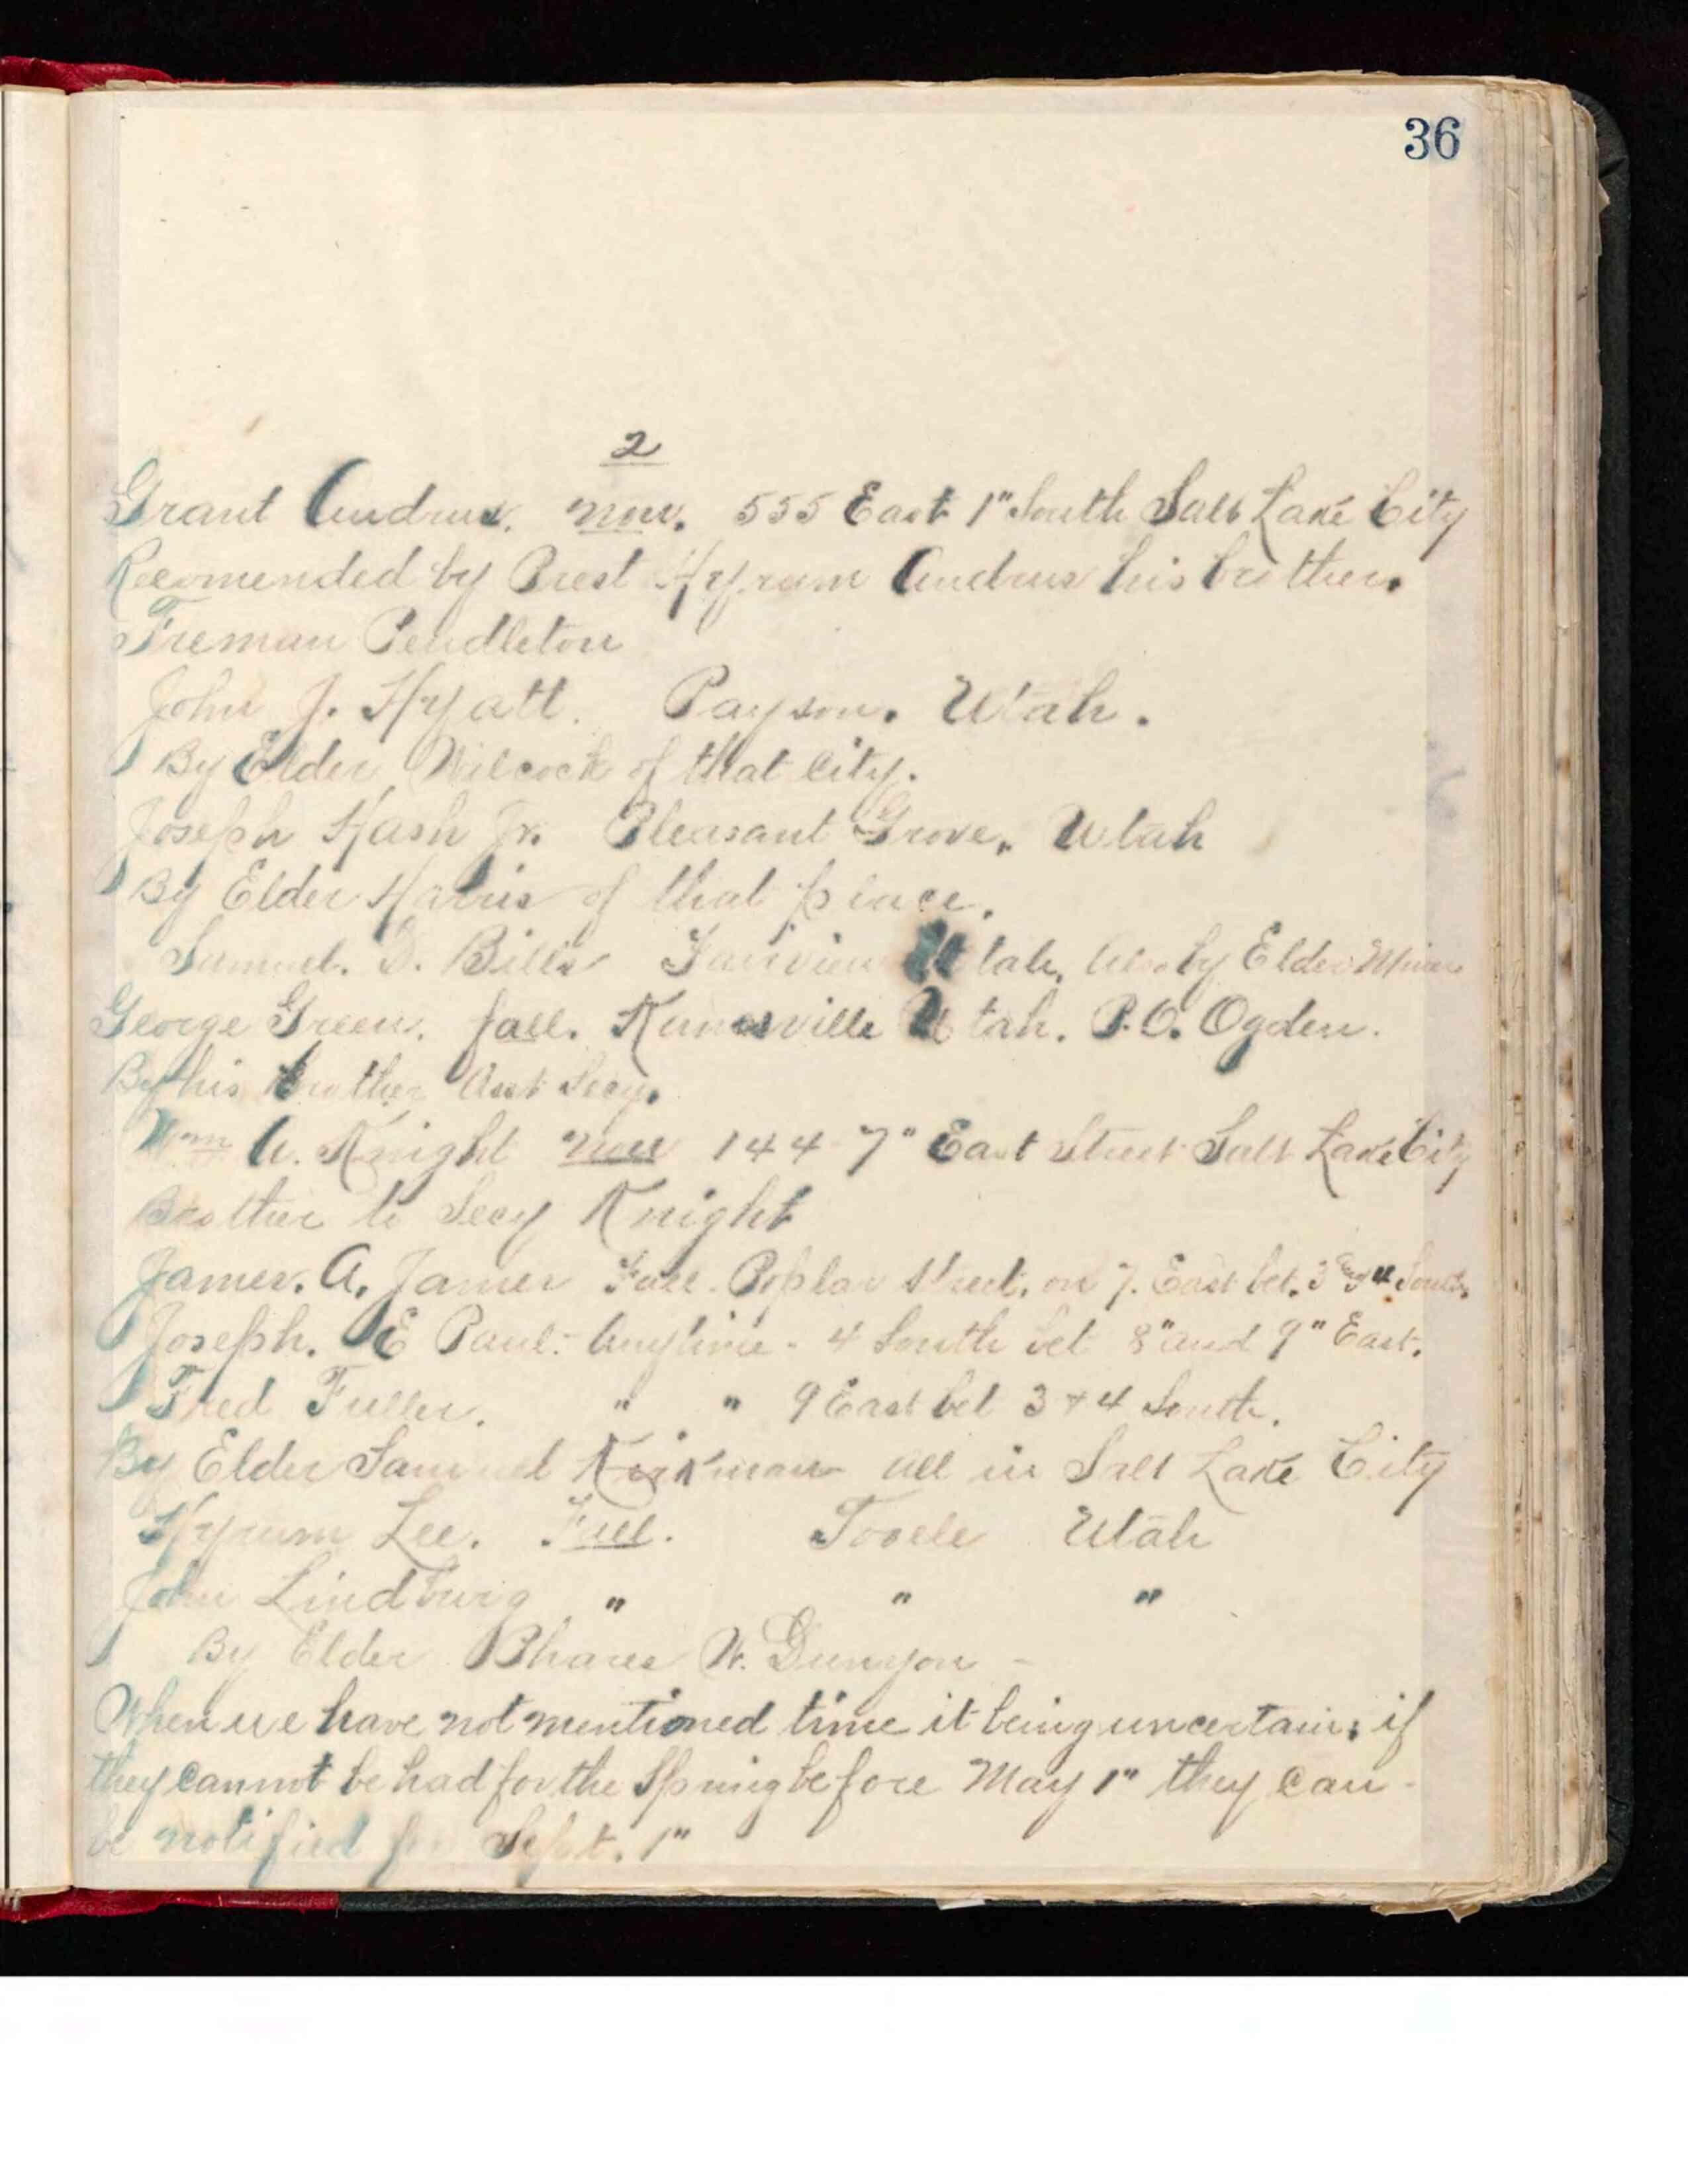 36
2
Grant Andrus. now. 555 East 1" South Salt Lake City
Recomended by Prest Hyrum Andrus his brother.
Freman Pendleton
John J. Hyatt. Payson. Utah.
By Elder Wilcock of that City.
Joseph Hash Jr. Pleasant Grove, Utah
By Elder Harris of that place.
Samuel. D. Bills Fairview Utah, Also by Elder
George Green. fall. Kanesville Utah. P.O. Ogden.
By his brother Asst Secy.
Wm A. Knight now 144-7" East Street Salt Lake City
Brother to Secy Knight
James. A. James Fall - Poplar Street, on 7. East bet. 3 and 4 South.
Joseph. E Paul - Anytime - 4 South bet 8" and 9" East.
Fred Fuller. " " 9 East bet 3 & 4 South.
By Elder Samuel Kirkman all in Salt Lake City
Hyrum Lee. Fall. Tooele Utah
John " " "
By Elder Phares W. Dunyon -
When we have not mentioned time it being uncertain; if
they cannot be had for the Spring before May 1" they can
be notified for Sept. 1"